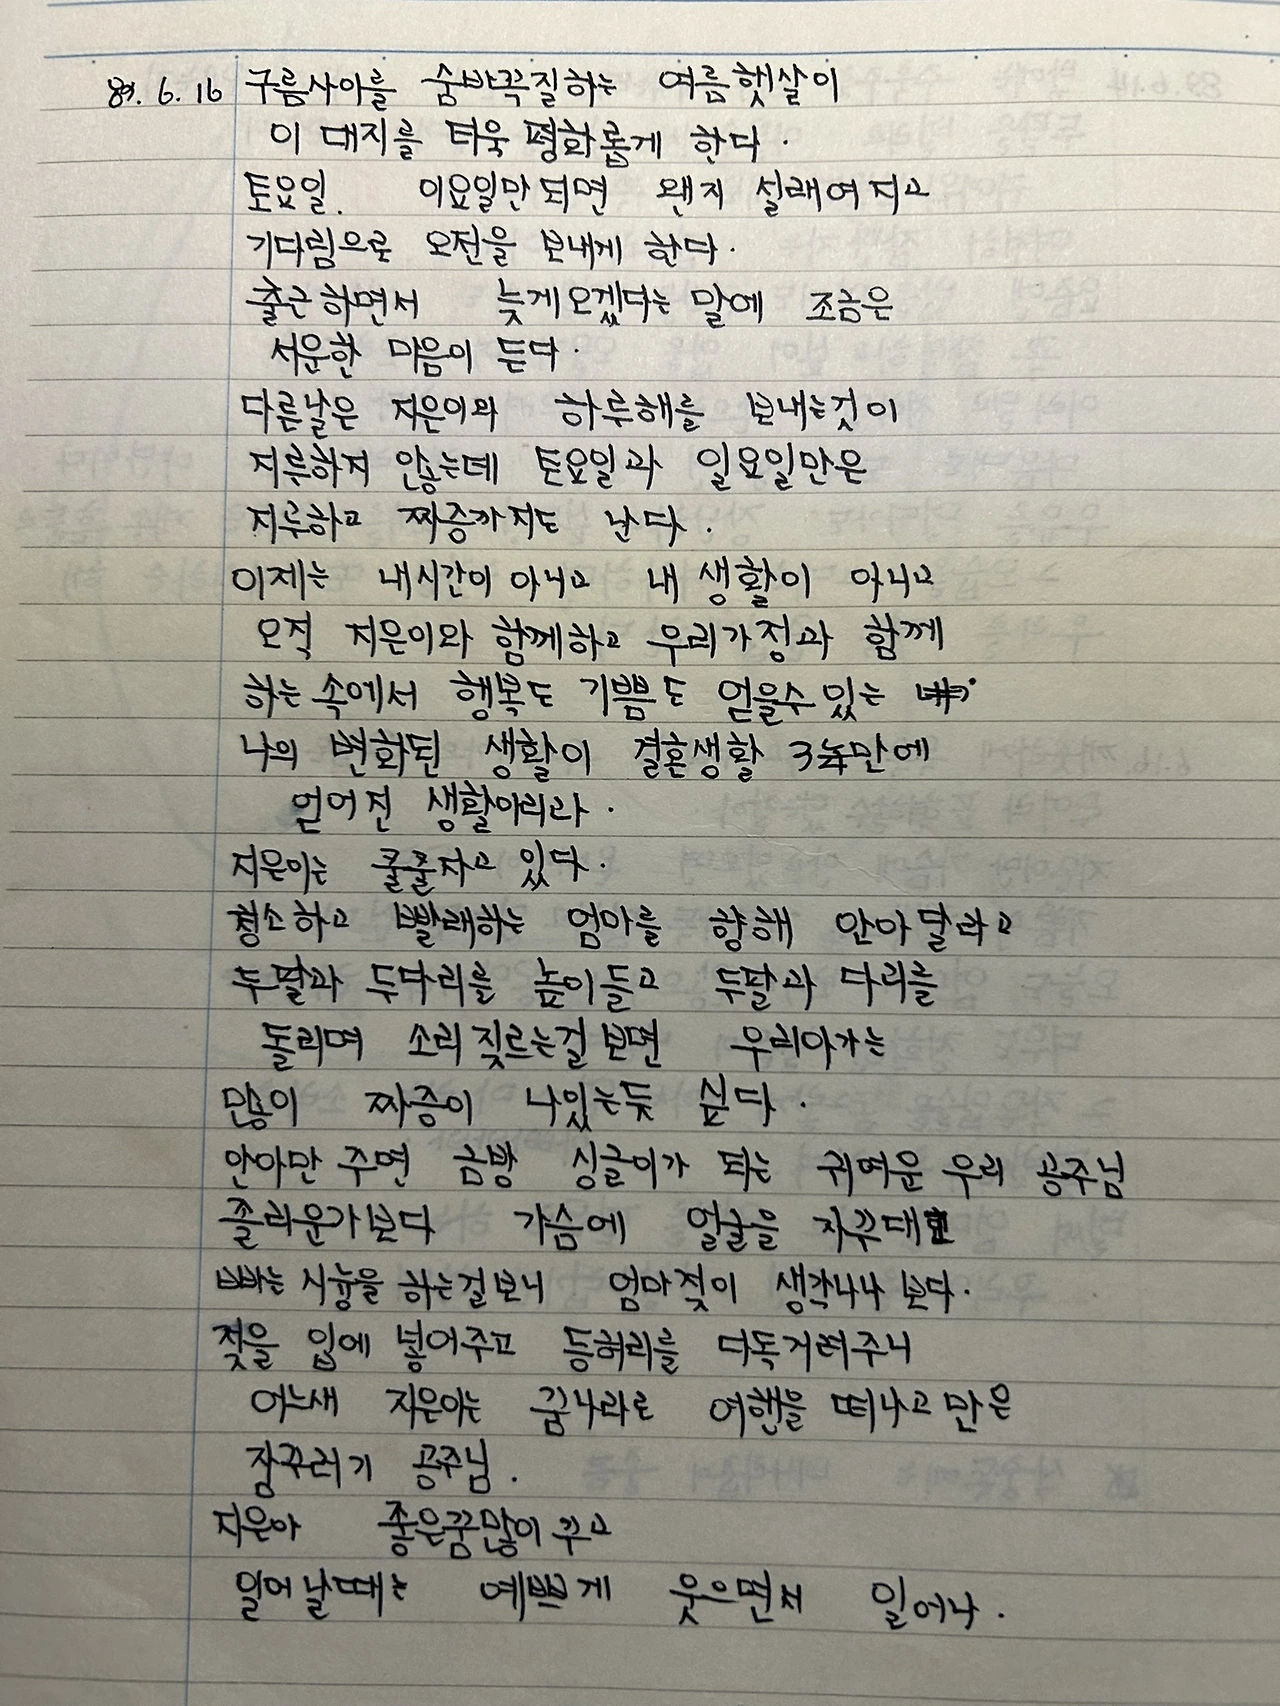 89. 6. 16 구름사이를 숨바꼭질하는 여름햇살이
이 대지를 더욱 평화롭게 한다.
토요일. 이요일만되면 왠지 설래여지고
기다림으로 오전을 보내게 한다.
출근하면서 늦게오겠다는 말에 조금은
서운한 마음이 든다.
다른날은 지은이와 하루해를 보내는것이
지루하지 않는데 토요일과 일요일만은
지루하고 짜증까지도 난다.
이제는 내시간이 아니고 내 생활이 아니고
오직 지은이와 함께하고 우리가정과 함께
하는 속에서 행복도 기쁨도 얻을수 있는
나의 변화된 생활이 결혼생활 3年만에
얻어진 생활이리라.
지은이는 쿨쿨자고 있다.
청소하고 빨래하는 엄마를 향해 안아달라고
두팔과 두다리를 높이들고 두팔과 다리를
돌리며 소리짖르는걸보면 우리아가는
많이 짜증이 나있는듯 싶다.
안아만 주면 금방 싱글이가 되는 귀여운 우리 공주님
졸리운가보다 가슴에 얼굴을 자꾸대고
빠는 시늉을 하는걸보니 엄마젖이 생각나나 보다.
젖을 입에 넣어주고 등허리를 다독거려주니
어느새 지은이는 꿈나라로 여행을 떠나고만은
잠꾸러기 공주님.
지은아 좋은꿈많이 꾸고
일어날때는 예쁘게 웃으면서 일어나.